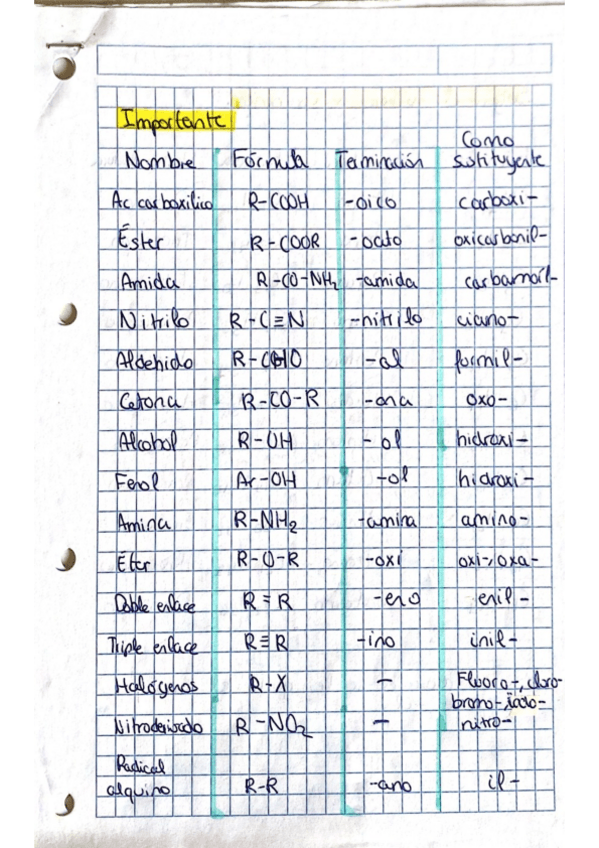 Importante
Nombre Fórmula Terminación Como sustituyente
Ac carboxílico R-COOH -oico carboxi-
Éster R-COOR -oato oxicarbonil-
Amida R-CO-NH₂ -amida carbamoil-
Nitrilo R-C≡N -nitrilo ciano-
Aldehido R-CHO -al formil-
Cetona R-CO-R -ona oxo-
Alcohol R-OH -ol hidroxi-
Fenol Ar-OH -ol hidroxi-
Amina R-NH₂ -amina amino-
Éter R-O-R -oxi oxi-, oxa-
Doble enlace R=R -eno enil-
Triple enlace R≡R -ino inil-
Halógenos R-X - Fluoro-, cloro-
bromo-, iodo-
Nitroderivado R-NO₂ - nitro-
Radical
alquino R-R -ano il-